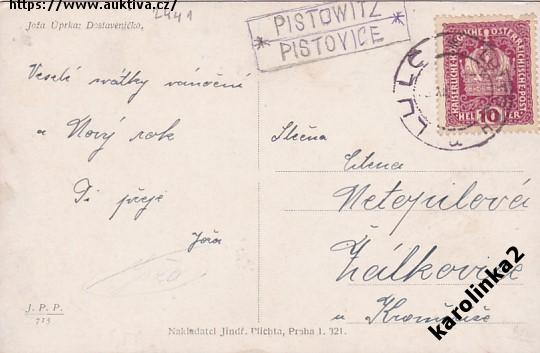 https://www.auktiva.cz/
2441
Joža Úprka: Dostaveníčko,
* PISTOWITZ *
PISTOVICE
KAISERLICHE KÖNIGLICHE ÖSTERREICHISCHE POST
HELLER 10
Veselé svátky vánoční
a Nový rok
Ti přeje
Joža
Slečna
Netopilová
Žálkovice
u Kroměříže
J. P. P.
715
Nakladatel Jindř. Plichta, Praha I. 321.
karolinka2